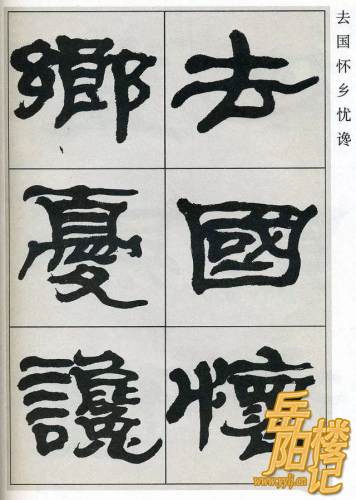 去国怀乡忧谗
去國懷
鄉憂讒
岳阳楼记
www.yylj.cn